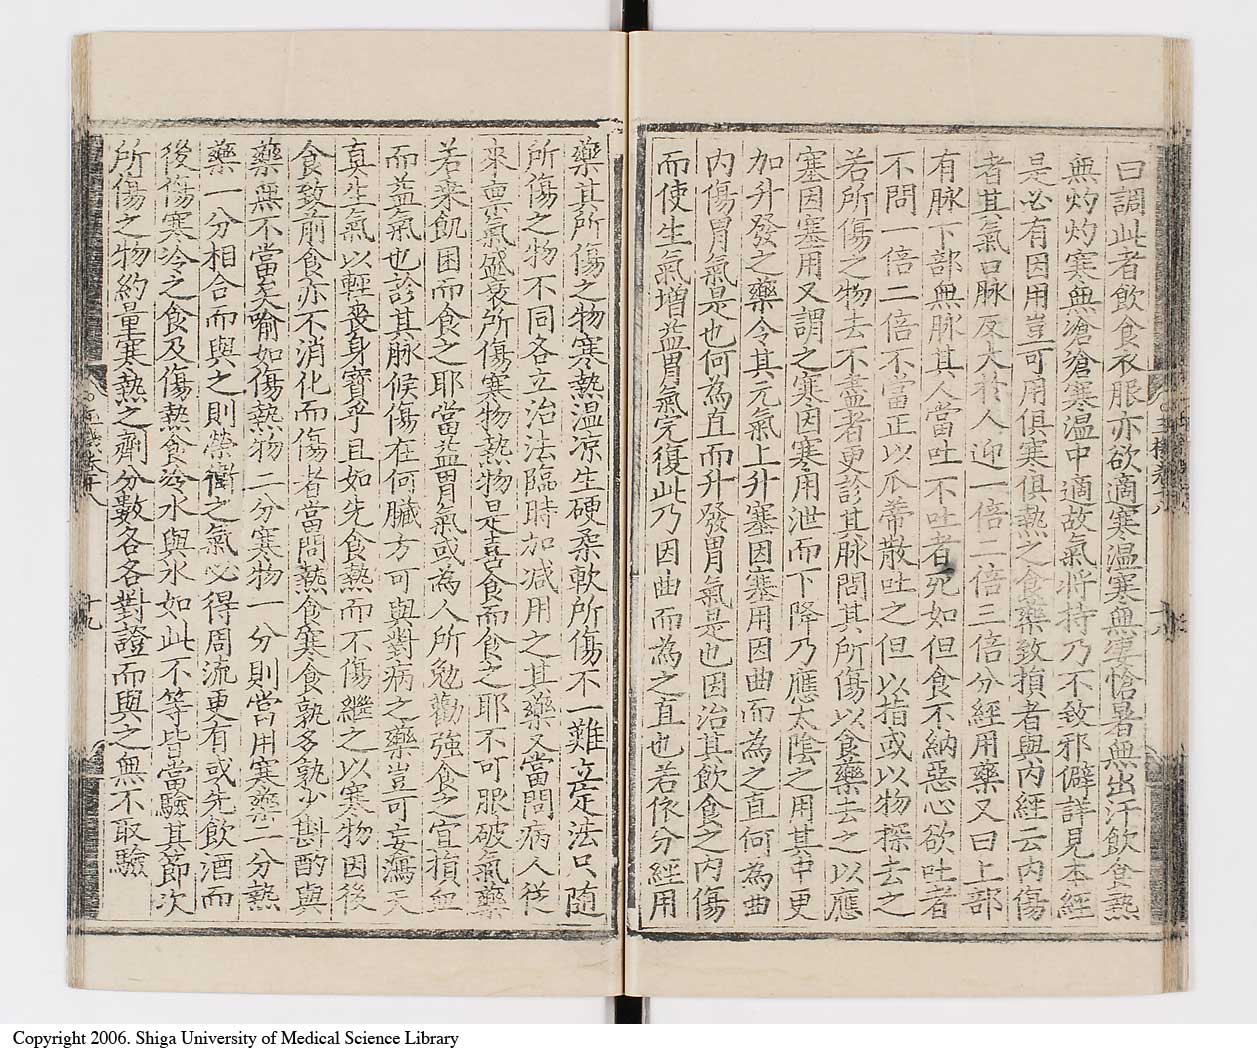 曰調此者飲食衣服亦欲適寒温寒無凄愴暑無出汗飲食熱
無灼灼寒無滄滄寒温中適故氣将持乃不致邪僻詳見本經
是必有因用豈可用俱寒俱熱之食藥致損者與内經云内傷
者其氣口脉反大於人迎一倍二倍三倍分經用藥又曰上部
有脉下部無脉其人當吐不吐者死如但食不納惡心欲吐者
不問一倍二倍不當正以瓜蒂散吐之但以指或以物探去之
若所傷之物去不盡者更診其脉問其所傷以食藥去之以應
塞因塞用又謂之寒因寒用泄而下降乃應太陰之用其中更
加升發之藥令其元氣上升塞因塞用因曲而為之直何為曲
内傷胃氣是也何為直而升發胃氣是也因治其飲食之内傷
而使生氣增益胃氣完復此乃因曲而為之直也若依分經用
藥其所傷之物寒熱温凉生硬柔軟所傷不一難立定法只隨
所傷之物不同各立治法臨時加减用之其藥又當問病人從
來稟氣盛衰所傷寒物熱物是喜食而食之耶不可服破氣藥
若来飢困而食之耶當益胃氣或為人所勉勸強食之宜損血
而益氣也診其脉候傷在何臟方可與對病之藥豈可妄瀉天
真生氣以輕喪身寶乎且如先食熱而不傷繼之以寒物因後
食致前食亦不消化而傷者當問熱食寒食孰多孰少斟酌與
藥無不當矣喻如傷熱物二分寒物一分則當用寒藥二分熱
藥一分相合而與之則榮衛之氣必得周流更有或先飲酒而
後傷寒冷之食及傷熱食冷水與氷如此不等皆當驗其節次
所傷之物約量寒熱之劑分數各各對證而與之無不取驗
十九
Copyright 2006. Shiga University of Medical Science Library